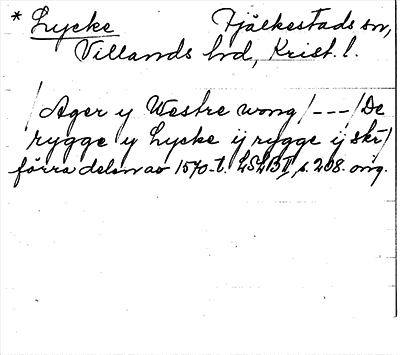 * Lycke Fjälkestads sn,
Villands hd, Krist. l.
/Ager y Westre wong/---/De
rygge y Lycke ij rygge ij skr/
förra delen av 1570-t. LSLB II, s. 208. orig.